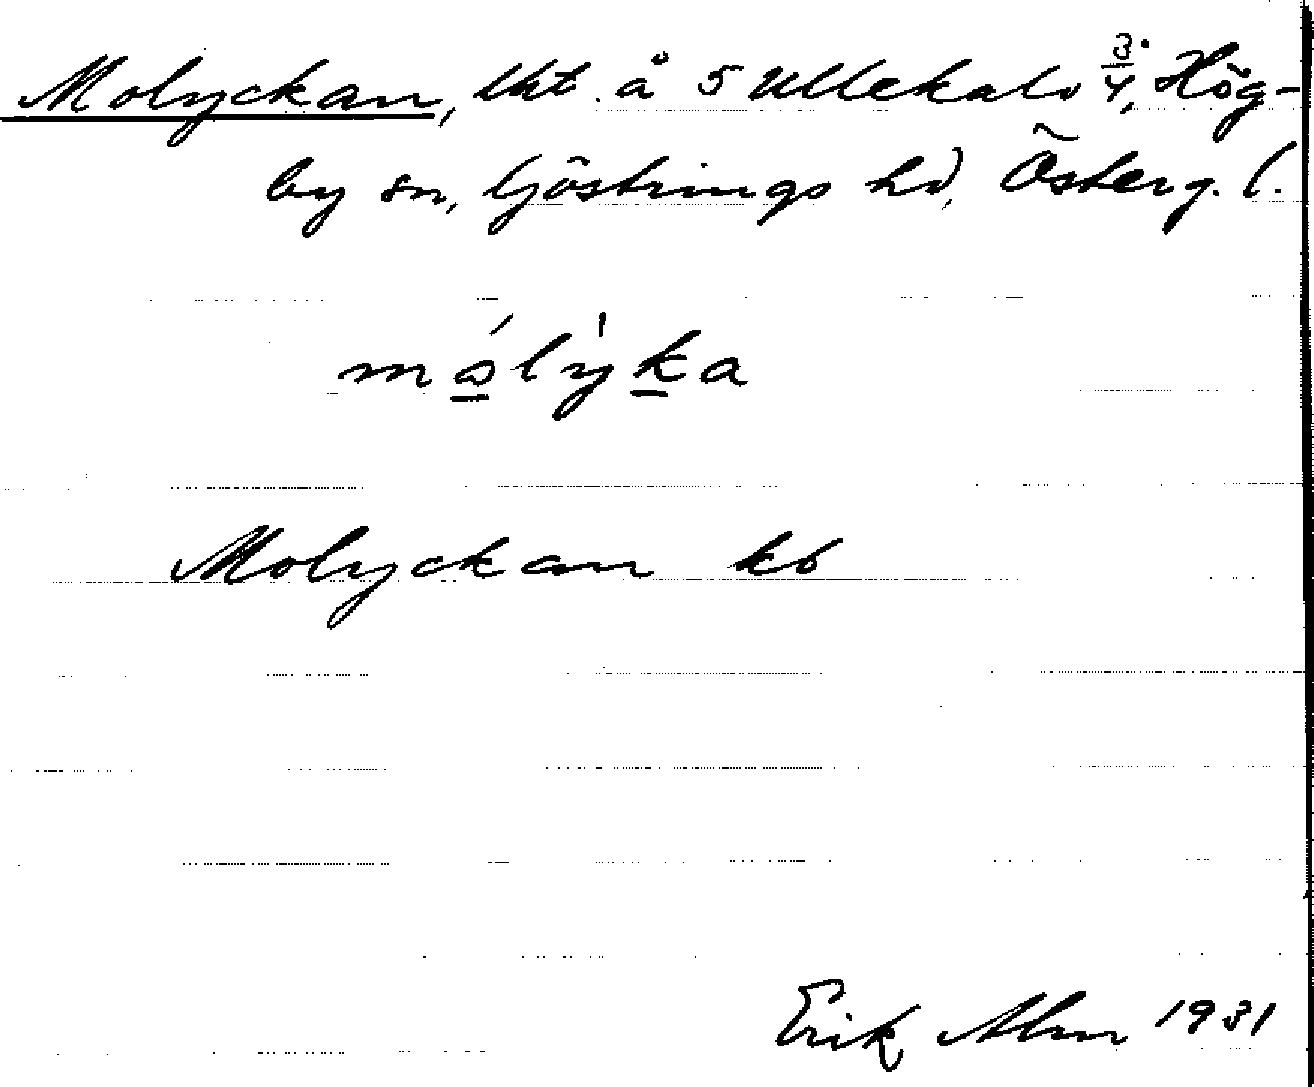 Molyckan, lht. å 5 Ullekalv 3/4, Hög-
by sn, Göstrings hd, Österg. l.
mólýka
Molyckan kb
Erik Alm 1931